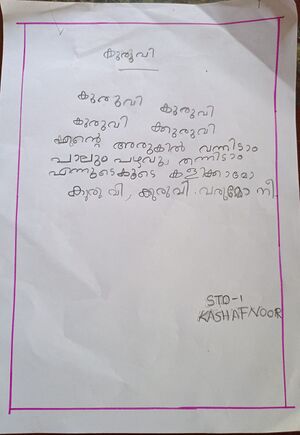 കുരുവി
കുരുവി കുരുവി
കുരുവി ക്കുരുവി
എന്റെ അരുകിൽ വന്നിടാം
പാലും പഴവും തന്നിടാം
എന്നുടെകൂടെ കളിക്കാമോ
കുരുവി, ക്കുരുവി വരുമോ നീ.
STD-1
KASHAFNOOR